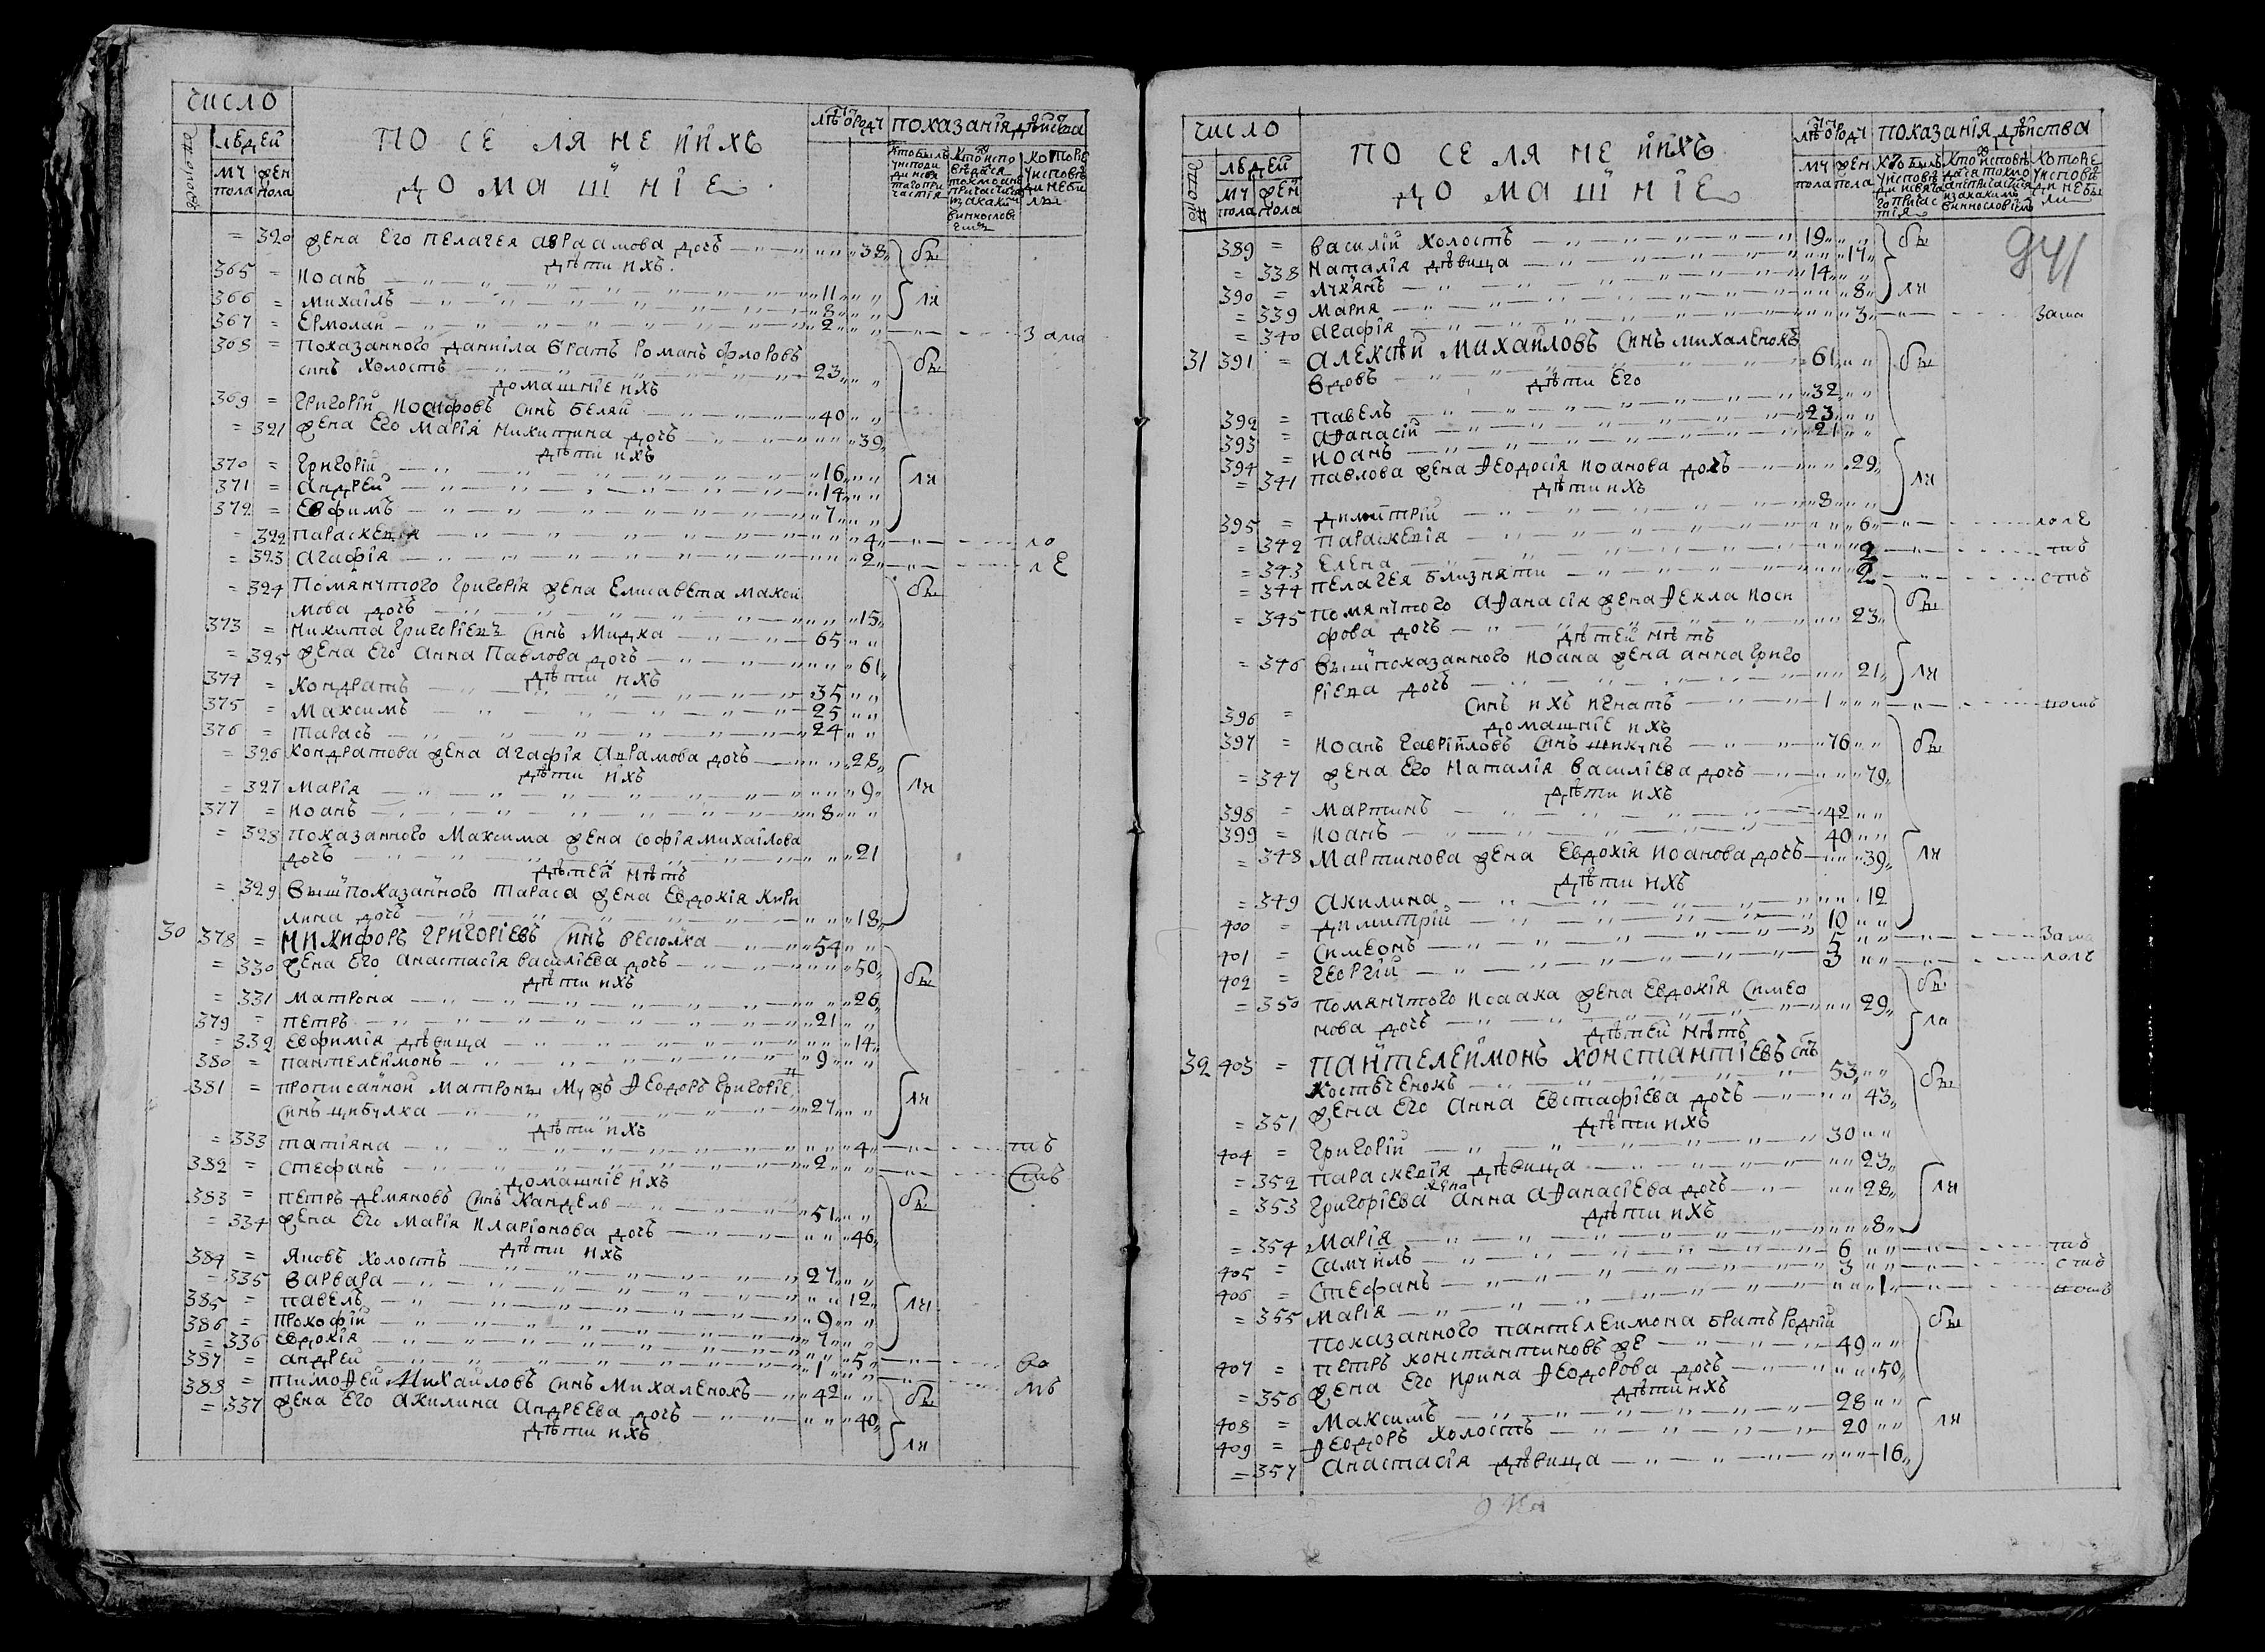 число
людей
мч пола
жен пола
ПОСЕЛЯНЕ ИИХЪ
ДОМАШНІЕ
показанія дѣйства
= 320 жена Его Пелагея Авраамова дочъ 38 бы
дѣти ихъ
365 = Иоанъ 11
366 = Михаилъ 8 ли
367 = Ермолай 2 за ма
368 = Показанного Даніила братъ Романъ Флоровъ
синъ холостъ 23 бы
домашніе ихъ
369 = Григорій Иосифовъ синъ Беляй 40
= 321 жена Его Марія Никитина дочъ 39
дѣти ихъ
370 = Григорій 16
371 = Андрей 14 ли
372 = Евфимъ 7
= 322 Параскевія 4 ло
= 323 Агафія 2 лЕ
= 324 Помянутого Григорія жена Елисавета Макси бы
мова дочъ 15
373 = Никита Григоріевъ синъ Мидка 65
= 325 жена Его Анна Павлова дочъ 61
дѣти ихъ
374 = Кондратъ 35
375 = Максимъ 25
376 = Тарасъ 24
= 326 Кондратова жена Агафія Аврамова дочъ 28
дѣти ихъ
= 327 Марія 9 ли
377 = Иоанъ 8
= 328 показанного Максима жена Софія Михаілова
дочъ 21
дѣтей нѣтъ
= 329 Вышпоказанного Тараса жена Евдокія Кири
лина дочъ 18
30 378 = Никифоръ Григоріевъ синъ Веселка 54
= 330 жена Его Анастасія Василіева дочъ 50 бы
дѣти ихъ
= 331 Матрона 26
379 = Петръ 21
= 332 Евфимія дѣвица 14
380 = Пантелеймонъ 9
381 = прописанной Матроны Мужъ Ѳеодоръ Григоріе
синъ Цибулка 27 ли
дѣти ихъ
= 333 татіяна 4 тъв
382 = Стефанъ 2 Ств
домашніе ихъ
383 = Петръ Демяновъ синъ Кандель 51 бы
= 334 жена Его Марія Иларіонова дочъ 46
дѣти ихъ
384 = Яковъ холостъ 27
= 335 Варвара 12
385 = Павелъ 9 ли
386 = Прокофій 7
= 336 Евдокія 5 во
387 = Андрей 1 мъ
388 = Тимофей Михайловъ синъ Михаленокъ 42 бы
= 337 жена Его Акилина Андреева дочъ 40
дѣти ихъ ли
число
людей
мч пола
жен пола
ПОСЕЛЯНЕ ИИХЪ
ДОМАШНІЕ
показанія дѣйства
941
389 = Василій холостъ 19 бы
= 338 Наталія дѣвица 17
390 = Лукянъ 14 ли
= 339 Мария 8
= 340 Агафія 3 зама
31 391 = Алексѣй Михайловъ синъ Михаленокъ
вдовъ 61 бы
дѣти Его
392 = Павелъ 32
393 = Афанасій 23
394 = Иоанъ 21
= 341 Павлова жена Ѳеодосія Иоанова дочъ 29 ли
дѣти ихъ
395 = Димитрій 8
= 342 Параскевія 6 лолЕ
= 343 Елена 2 тъв
= 344 Пелагея близняти 2 ств
= 345 помянутого Аѳанасія жена Ѳекла Иоси бы
фова дочъ 23
дѣтей нѣтъ
= 346 вышпоказанного Иоана жена Анна Григо
ріева дочъ 21 ли
396 = синъ ихъ Игнатъ 1
домашніе ихъ
397 = Иоанъ Гавріиловъ синъ Шикунъ 76 бы
= 347 жена Его Наталія Василіева дочъ 79
дѣти ихъ
398 = Мартинъ 42
399 = Иоанъ 40
= 348 Мартинова жена Евдокія Иоанова дочъ 39 ли
дѣти ихъ
= 349 Акилина 12
400 = Димитрій 10
401 = Симеонъ 5 зама
402 = Георгій 3
= 350 помянутого Исаака жена Евдокія Симео бы
нова дочъ 29
дѣтей нѣтъ ли
32 403 = Пантелеймонъ Константіевъ снъ
Костюченокъ 53 бы
= 351 жена Его Анна Евстафіева дочъ 43
дѣти ихъ
404 = Григорій 30
= 352 Параскевія дѣвица 23
= 353 Григоріева жена Анна Аѳанасіева дочъ 28 ли
дѣти ихъ
= 354 Марія 8
405 = Самуилъ 6 тъв
406 = Стефанъ 3 ств
= 355 Марія 1
Показанного Пантелеимона братъ родній бы
407 = Петръ Константиновъ же 49
= 356 жена Его Ирина Ѳеодорова дочъ 50
дѣти ихъ
408 = Максимъ 28
409 = Ѳеодоръ холостъ 20 ли
= 357 Анастасія дѣвица 16